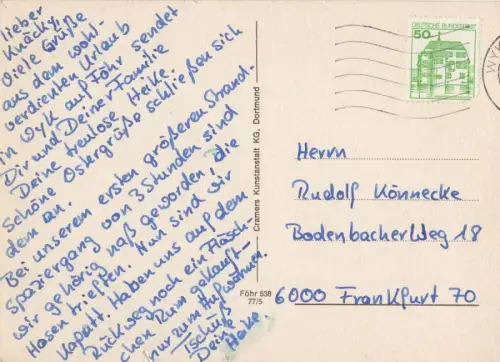 lieber
Knäckx,
viele Grüße
aus dem wohl-
verdienten Urlaub
in Wyk auf Föhr sendet
Dir und Deiner Familie
Deine treulose Heike.
Schöne Ostergrüße schließen sich
dem an.
Bei unserem ersten größeren Strand-
spaziergang von 3 Stunden sind
wir gehörig naß geworden (die
Hosen trieften. Nun sind wir
kaputt. Haben uns auf dem
Rückweg noch ein Fläsch-
chen Rum gekauft-
nur zum Aufwärmen.
Tschüß
Deine
Heike.
Cramers Kunstanstalt KG, Dortmund
Föhr 538
77/5
50
DEUTSCHE BUNDESPOST
WYK
Herrn
Rudolf Könnecke
Bodenbacher Weg 18
6000 Frankfurt 70